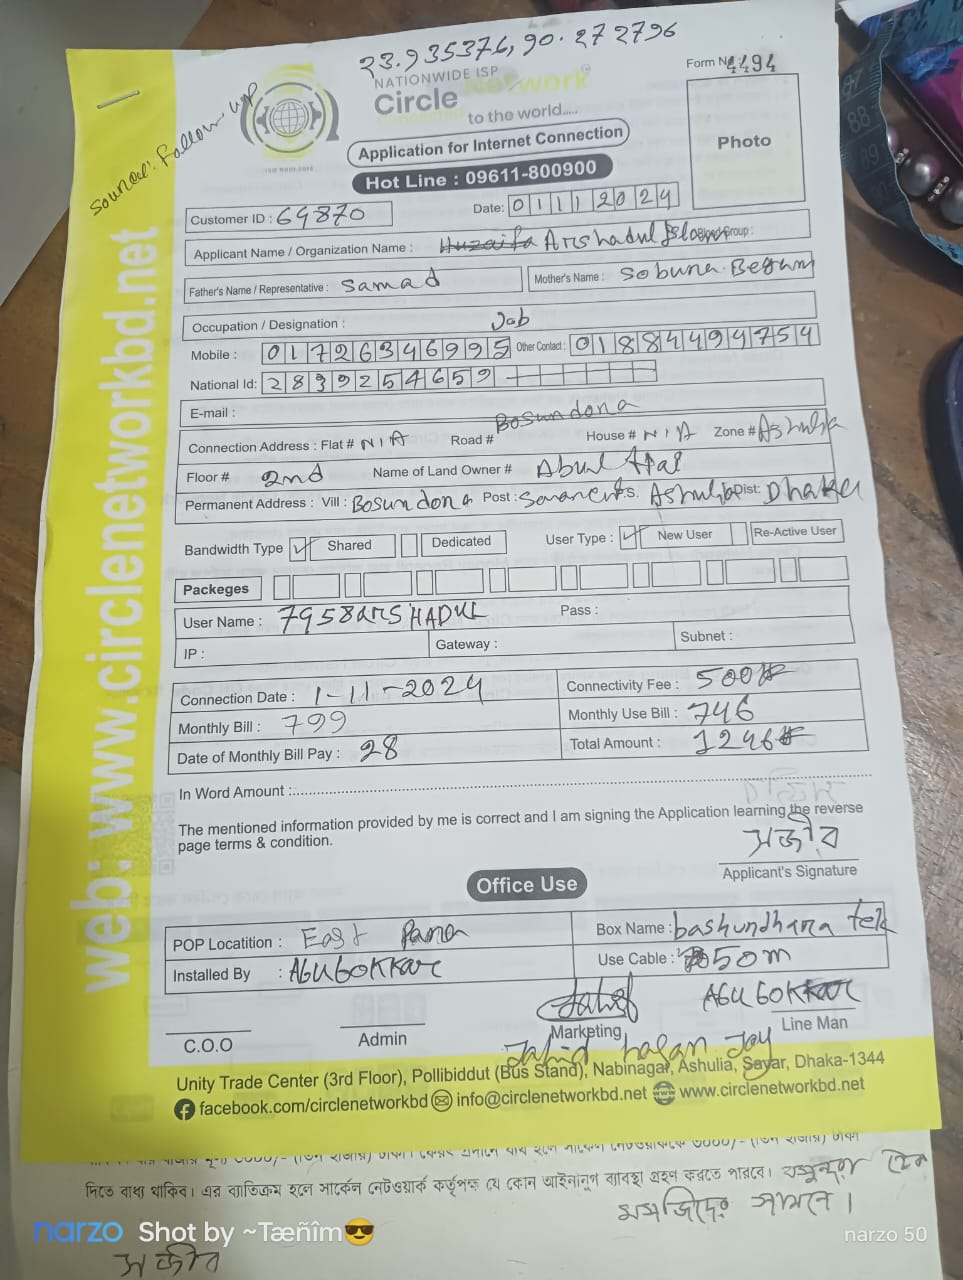 23.935376, 90.272796
Source: Follow up
NATIONWIDE ISP
Circle Network
to the world.....
Form No 4494
Photo
Application for Internet Connection
Hot Line : 09611-800900
Customer ID : 69870
Date: 01112024
Applicant Name / Organization Name : Huzaifa Arshadul Islam Blood Group :
Father's Name / Representative : Samad
Mother's Name : Sobuna Begum
Occupation / Designation : Job
Mobile : 01726346995 Other Contact : 01884494754
National Id: 2839254659
E-mail :
Connection Address : Flat # N/A Road # Bosundona House # N/A Zone # Ashulia
Floor # 2nd Name of Land Owner # Abul
Permanent Address : Vill : Bosundona Post : P.S. Ashulia Dist: Dhaka
Bandwidth Type Shared Dedicated User Type : New User Re-Active User
Packeges
User Name : 7958ARSHADUL Pass :
IP : Gateway : Subnet :
Connection Date : 1-11-2024 Connectivity Fee : 500
Monthly Bill : 799 Monthly Use Bill : 746
Date of Monthly Bill Pay : 28 Total Amount : 1246
In Word Amount :
The mentioned information provided by me is correct and I am signing the Application learning the reverse
page terms & condition.
সজীব
Applicant's Signature
Office Use
POP Locatition : East Para Box Name : bashundhara tek
Installed By : ABUBOKKAR Use Cable : 50m
ABUBOKKAR
C.O.O Admin Marketing Line Man
Jahid hasan Joy
Unity Trade Center (3rd Floor), Pollibiddut (Bus Stand), Nabinagar, Ashulia, Savar, Dhaka-1344
facebook.com/circlenetworkbd info@circlenetworkbd.net www.circlenetworkbd.net
web: www.circlenetworkbd.net
দিতে বাধ্য থাকিব। এর ব্যাতিক্রম হলে সার্কেল নেটওয়ার্ক কর্তৃপক্ষ যে কোন আইনানুগ ব্যাবস্থা গ্রহণ করতে পারবে। বসুন্ধরা টেক
মসজিদের সামনে।
narzo Shot by ~Tæñîm😎
narzo 50
সজীব